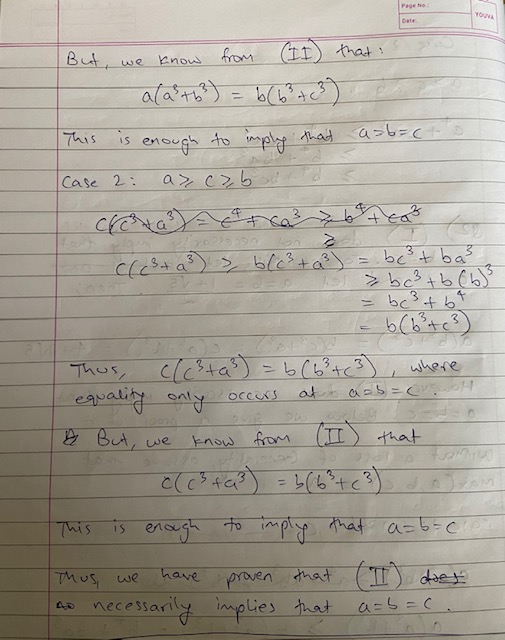 Page No.:
Date:
YOUVA
But, we know from (II) that:
a(a³+b³) = b(b³+c³)
This is enough to imply that a=b=c
Case 2: a ≥ c ≥ b
c(c³+a³) = c⁴ + ca³ ≥ b⁴ + ca³
≥
c(c³+a³) ≥ b(c³+a³) = bc³ + ba³
≥ bc³ + b(b)³
= bc³ + b⁴
= b(b³+c³)
Thus, c(c³+a³) = b(b³+c³), where
equality only occurs at a=b=c.
But, we know from (II) that
c(c³+a³) = b(b³+c³)
This is enough to imply that a=b=c
Thus, we have proven that (II) does
necessarily implies that a=b=c.